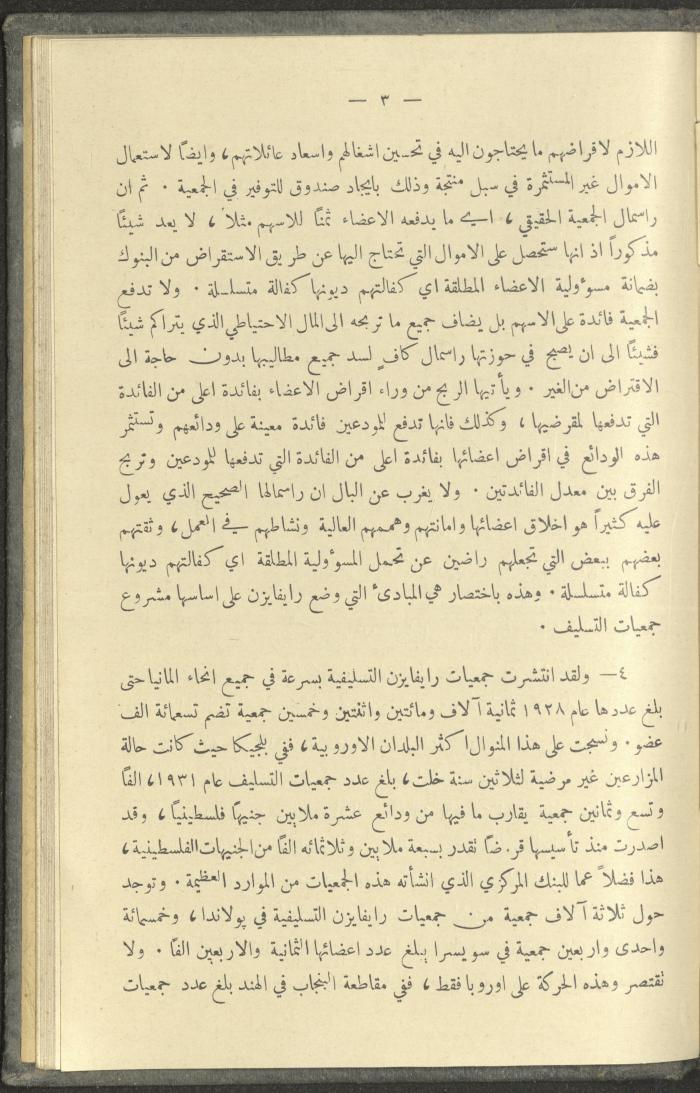 — ٣ —
اللازم لاقراضهم ما يحتاجون اليه في تحسين اشغالهم واسعاد عائلاتهم، وايضاً لاستعمال
الاموال غير المستثمرة في سبل منتجة وذلك بايجاد صندوق للتوفير في الجمعية . ثم ان
راسمال الجمعية الحقيقي ، اي ما يدفعه الاعضاء ثمناً للاسهم مثلاً ، لا يعد شيئاً
مذكوراً اذ انها ستحصل على الاموال التي تحتاج اليها عن طريق الاستقراض من البنوك
بضمانة مسؤولية الاعضاء المطلقة اي كفالتهم ديونها كفالة متسلسلة . ولا تدفع
الجمعية فائدة على الاسهم بل يضاف جميع ما تربحه الى المال الاحتياطي الذي يتراكم شيئاً
فشيئاً الى ان يصبح في حوزتها راسمال كافٍ لسد جميع مطاليبها بدون حاجة الى
الاقتراض من الغير . ويأتيها الربح من وراء اقراض الاعضاء بفائدة اعلى من الفائدة
التي تدفعها لمقرضيها ، وكذلك فانها تدفع للمودعين فائدة معينة على ودائعهم وتستثمر
هذه الودائع في اقراض اعضائها بفائدة اعلى من الفائدة التي تدفعها للمودعين وتربح
الفرق بين معدل الفائدتين . ولا يغرب عن البال ان راسمالها الصحيح الذي يعول
عليه كثيراً هو اخلاق اعضائها وامانتهم وهممهم العالية ونشاطهم في العمل ، وثقتهم
بعضهم ببعض التي تجعلهم راضين عن تحمل المسؤولية المطلقة اي كفالتهم ديونها
كفالة متسلسلة . وهذه باختصار هي المبادئ التي وضع رايفايزن على اساسها مشروع
جمعيات التسليف .
٤ — ولقد انتشرت جمعيات رايفايزن التسليفية بسرعة في جميع انحاء المانيا حتى
بلغ عددها عام ١٩٢٨ ثمانية آلاف ومائتين واثنتين وخمسين جمعية تضم تسعمائة الف
عضو . ونسجت على هذا المنوال اكثر البلدان الاوروبية ، ففي بلجيكا حيث كانت حالة
المزارعين غير مرضية لثلاثين سنة خلت ، بلغ عدد جمعيات التسليف عام ١٩٣١ ، الفاً
وتسع وثمانين جمعية يقارب ما فيها من ودائع عشرة ملايين جنيهاً فلسطينياً ، وقد
اصدرت منذ تأسيسها قرضاً تقدر بسبعة ملايين وثلاثمائه الفاً من الجنيهات الفلسطينية ،
هذا فضلاً عما للبنك المركزي الذي انشأته هذه الجمعيات من الموارد العظيمة . وتوجد
حول ثلاثة آلاف جمعية من جمعيات رايفايزن التسليفية في پولاندا ، وخمسمائة
واحدى واربعين جمعية في سويسرا يبلغ عدد اعضائها الثمانية والاربعين الفاً . ولا
تقتصر وهذه الحركة على اوروبا فقط ، ففي مقاطعة البنجاب في الهند بلغ عدد جمعيات